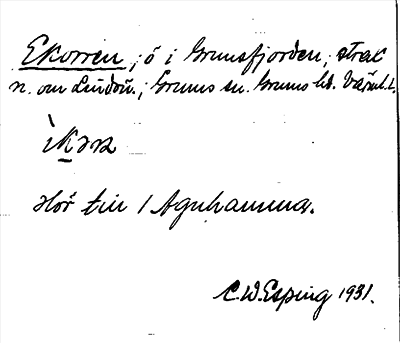 Ekorren; ö i Grumsfjorden, strax
n. om Lindön.; Grums sn. Grums hd. Värml. l.
Hör till / Agnhamma.
C.W. Esping 1931.